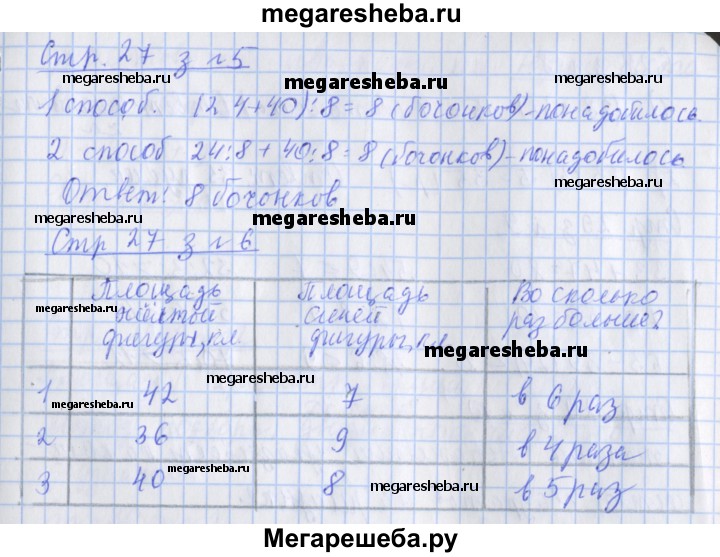 megaresheba.ru
Стр. 27 з №5
megaresheba.ru megaresheba.ru megaresheba.ru
1 способ. (24+40):8=8 (бочонков)-понадобилось.
2 способ 24:8+40:8=8 (бочонков)-понадобилось
Ответ: 8 бочонков
megaresheba.ru megaresheba.ru
Стр 27 з №6
Площадь жёлтой фигуры, кл. Площадь синей фигуры, кл Во сколько раз больше?
megaresheba.ru megaresheba.ru megaresheba.ru
1 42 7 в 6 раз
megaresheba.ru megaresheba.ru
2 36 9 в 4 раза
3 40 8 в 5 раз
megaresheba.ru megaresheba.ru
Мегарешеба.ру